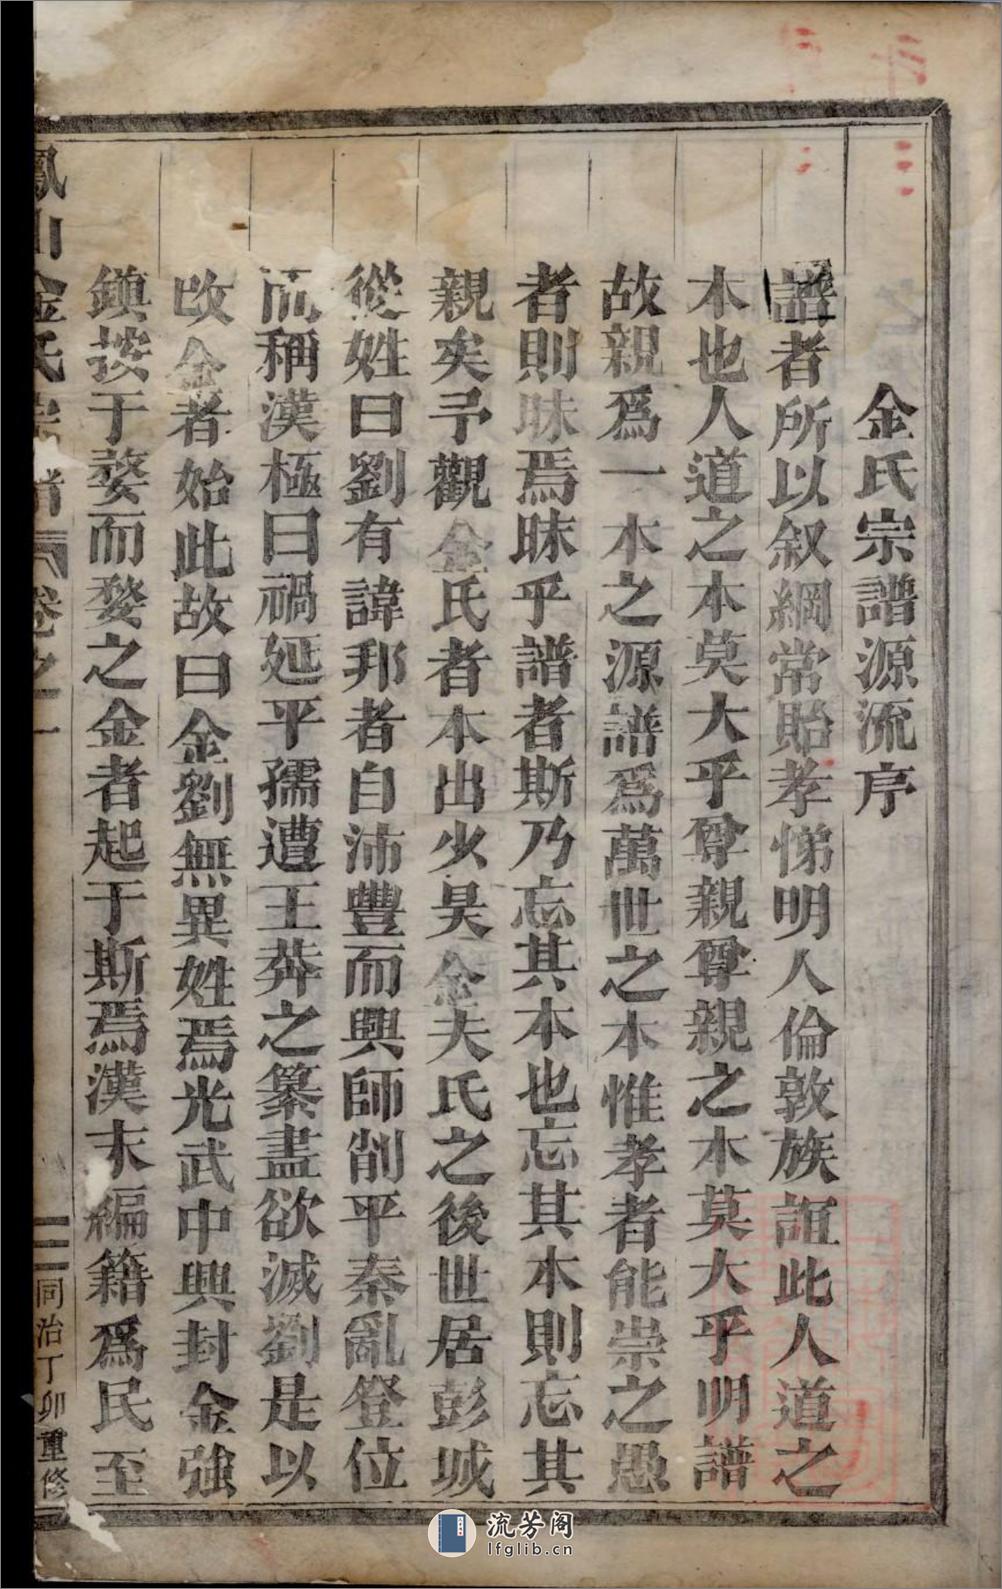 金氏宗譜源流序
譜者所以叙綱常貽孝悌明人倫敦族誼此人道之
本也人道之本莫大乎尊親尊親之本莫大乎明譜
故親爲一本之源譜爲萬世之本惟孝者能崇之愚
者則昧焉昧乎譜者斯乃忘其本也忘其本則忘其
親矣予觀金氏者本出少昊金天氏之後世居彭城
從姓曰劉有諱邦者自沛豐而興師削平秦亂登位
而稱漢極曰禍延平孺遭王莽之纂盡欲滅劉是以
改金者始此故曰金劉無異姓焉光武中興封金強
鎮按于婺而婺之金者起于斯焉漢末編籍爲民至
鳳山金氏宗譜 卷之一 同治丁卯重修
流芳阁
lfglib.cn